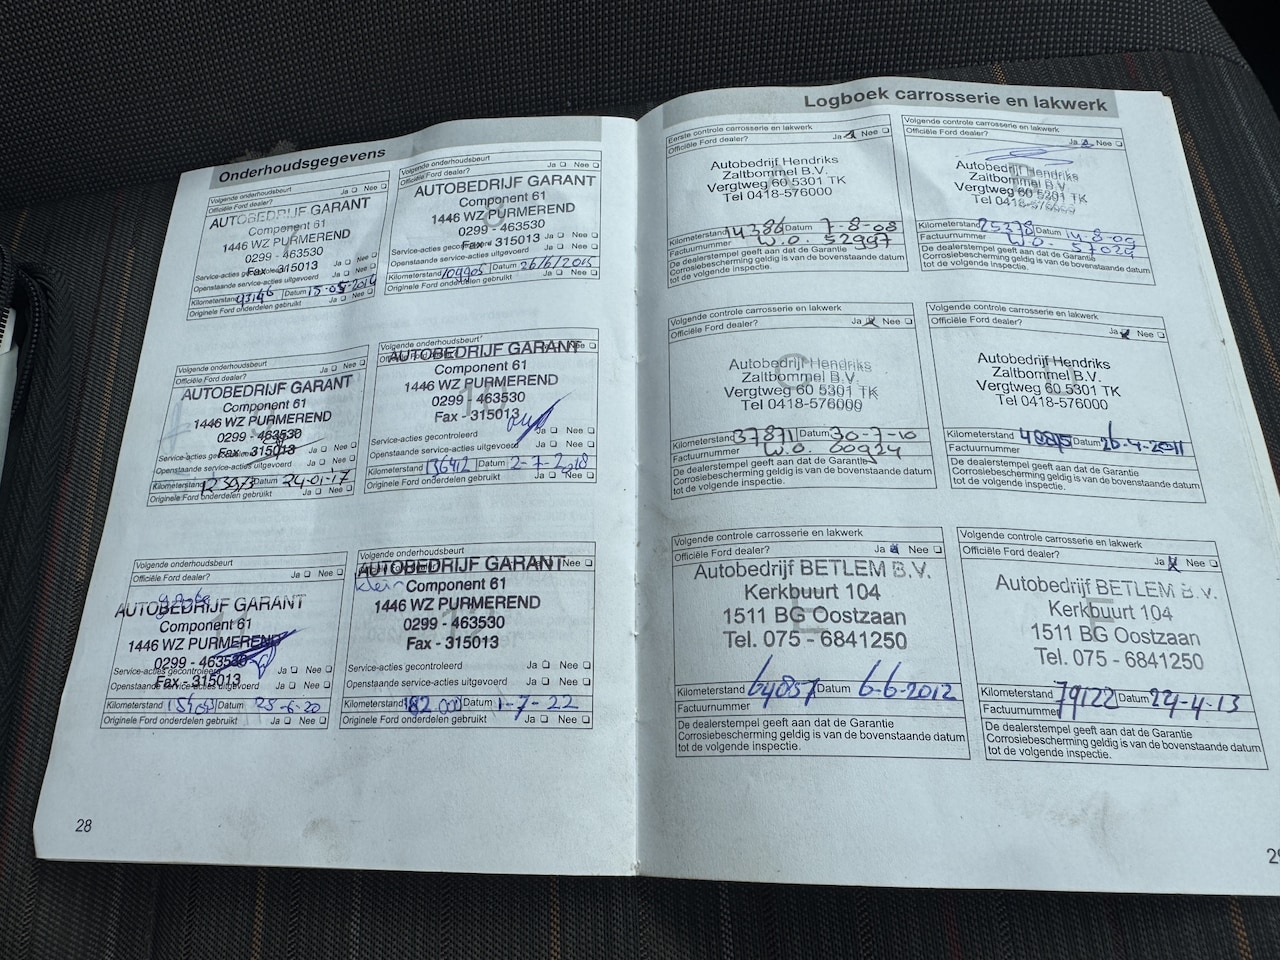 Onderhoudsgegevens
Volgende onderhoudsbeurt
Officiële Ford dealer? Ja Nee
AUTOBEDRIJF GARANT
Component 61
1446 WZ PURMEREND
0299 - 463530
Fax - 315013
Service-acties gecontroleerd
Openstaande service-acties uitgevoerd Ja Nee
Kilometerstand 93146 Datum
Originele Ford onderdelen gebruikt Ja Nee
Volgende onderhoudsbeurt
Ja Nee
AUTOBEDRIJF GARANT
Component 61
1446 WZ PURMEREND
0299 - 463530
Fax - 315013
Service-acties gecontroleerd Ja Nee
Openstaande service-acties uitgevoerd Ja Nee
Kilometerstand 109905 Datum 26/6/2015
Originele Ford onderdelen gebruikt Ja Nee
Volgende onderhoudsbeurt
Officiële Ford dealer? Ja Nee
AUTOBEDRIJF GARANT
Component 61
1446 WZ PURMEREND
0299 - 463530
Fax - 315013
Service-acties gecontroleerd Ja Nee
Openstaande service-acties uitgevoerd Ja Nee
Kilometerstand 123973 Datum 24-01-17
Originele Ford onderdelen gebruikt Ja Nee
Volgende onderhoudsbeurt
AUTOBEDRIJF GARANT
Component 61
1446 WZ PURMEREND
0299 - 463530
Fax - 315013
Service-acties gecontroleerd Ja Nee
Openstaande service-acties uitgevoerd Ja Nee
Kilometerstand 136412 Datum 2-7-2018
Originele Ford onderdelen gebruikt Ja Nee
Volgende onderhoudsbeurt
Officiële Ford dealer? Ja Nee
AUTOBEDRIJF GARANT
Component 61
1446 WZ PURMEREND
0299 - 463530
Fax - 315013
Service-acties gecontroleerd Ja Nee
Openstaande service-acties uitgevoerd Ja Nee
Kilometerstand Datum 25-6-20
Originele Ford onderdelen gebruikt Ja Nee
Volgende onderhoudsbeurt
AUTOBEDRIJF GARANT
klein
Component 61
1446 WZ PURMEREND
0299 - 463530
Fax - 315013
Service-acties gecontroleerd Ja Nee
Openstaande service-acties uitgevoerd Ja Nee
Kilometerstand 182.000 Datum 1-7-22
Originele Ford onderdelen gebruikt Ja Nee
28
Logboek carrosserie en lakwerk
Eerste controle carrosserie en lakwerk
Officiële Ford dealer? Ja Nee
Autobedrijf Hendriks
Zaltbommel B.V.
Vergtweg 60 5301 TK
Tel 0418-576000
Kilometerstand 14386 Datum 7-8-08
Factuurnummer W.O. 52997
De dealerstempel geeft aan dat de Garantie
Corrosiebescherming geldig is van de bovenstaande datum
tot de volgende inspectie.
Volgende controle carrosserie en lakwerk
Officiële Ford dealer? Ja Nee
Autobedrijf Hendriks
Zaltbommel B.V.
Vergtweg 60 5301 TK
Tel 0418-576000
Kilometerstand 25378 Datum 14-8-09
Factuurnummer
De dealerstempel geeft aan dat de Garantie
Corrosiebescherming geldig is van de bovenstaande datum
tot de volgende inspectie.
Volgende controle carrosserie en lakwerk
Officiële Ford dealer? Ja Nee
Autobedrijf Hendriks
Zaltbommel B.V.
Vergtweg 60 5301 TK
Tel 0418-576000
Kilometerstand 37871 Datum 30-7-10
Factuurnummer W.O. 00924
De dealerstempel geeft aan dat de Garantie
Corrosiebescherming geldig is van de bovenstaande datum
tot de volgende inspectie.
Volgende controle carrosserie en lakwerk
Officiële Ford dealer? Ja Nee
Autobedrijf Hendriks
Zaltbommel B.V.
Vergtweg 60 5301 TK
Tel 0418-576000
Kilometerstand Datum 26-4-2011
Factuurnummer
De dealerstempel geeft aan dat de Garantie
Corrosiebescherming geldig is van de bovenstaande datum
tot de volgende inspectie.
Volgende controle carrosserie en lakwerk
Officiële Ford dealer? Ja Nee
Autobedrijf BETLEM B.V.
Kerkbuurt 104
1511 BG Oostzaan
Tel. 075 - 6841250
Kilometerstand 64857 Datum 6-6-2012
Factuurnummer
De dealerstempel geeft aan dat de Garantie
Corrosiebescherming geldig is van de bovenstaande datum
tot de volgende inspectie.
Volgende controle carrosserie en lakwerk
Officiële Ford dealer? Ja Nee
Autobedrijf BETLEM B.V.
Kerkbuurt 104
1511 BG Oostzaan
Tel. 075 - 6841250
Kilometerstand 79122 Datum 24-4-13
Factuurnummer
De dealerstempel geeft aan dat de Garantie
Corrosiebescherming geldig is van de bovenstaande datum
tot de volgende inspectie.